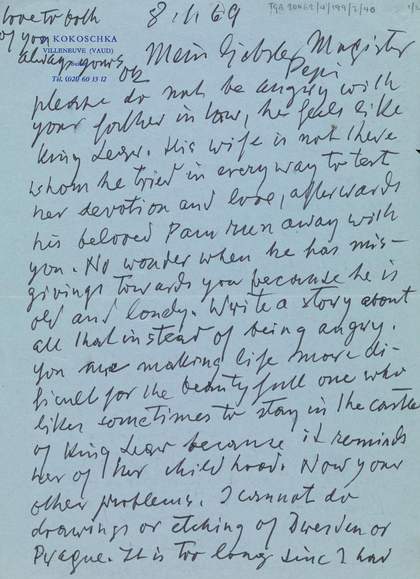 love to both
of you
always yours
OK
8.1.69
TGA 20062/4/199/2/40
KOKOSCHKA
VILLENEUVE (VAUD)
Tél. (021) 60 13 12
Mein Liebster Magister
Pepi
please do not be angry with
your father in law, he feels like
King Lear. His wife is not there
whom he tried in every way to test
her devotion and love, afterwards
his beloved Pam run away with
you. No wonder when he has mis-
givings towards you because he is
old and lonely. Write a story about
all that instead of being angry.
You are making life more di-
ficult for the beautyfull one who
likes sometimes to stay in the castle
of King Lear because it reminds
her of her childhood. Now your
other problems. I cannot do
drawings or etching of Dresden or
Prague. It is too long since I had